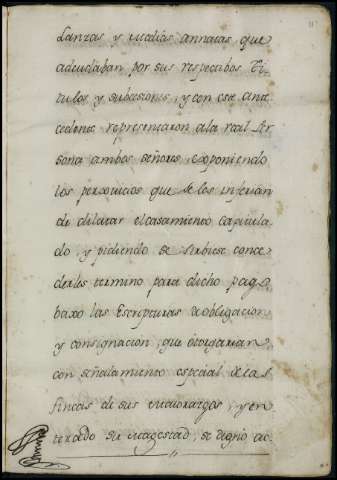 Lanzas y medias annatas que
adeudaban por sus respectibos Ti-
tulos y subcesiones, y con este ante
cedente, representaron a la real Per
sona ambos señores, exponiendo
los perjuicios que se les inferian
de dilatar el casamiento capitula
do, y pidiendo se sirbiese conce
derles termino para dicho pago
baxo las Escripturas de obligacion
y consignacion, que otorgarian
con señalamiento especial de las
fincas de sus maiorazgos, y en
terado su magestad, se digno ac